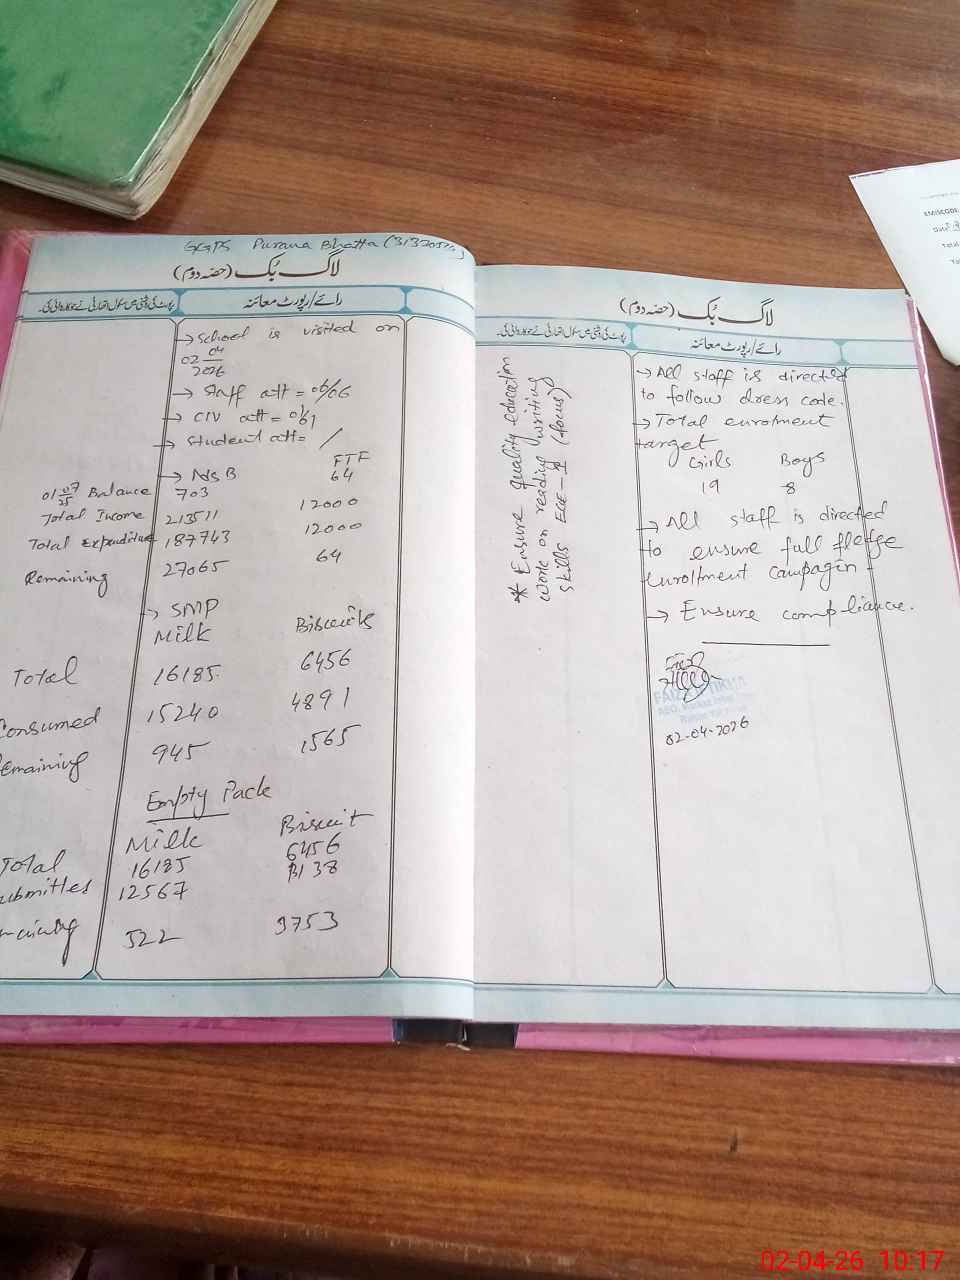 GGPS Purana Bhatta (
لاگ بُک (حصّہ دوم)
رائے/رپورٹ معائنہ
→ School is visited on
02 04 2026
→ Staff att = 06/06
→ CIV att = 01/1
→ Student att= /
→ NSB FTF
01 07 25 Balance 703 64
Total Income 213511 12000
Total Expenditure 187743 12000
Remaining 27065 64
→ SMP
Milk Biscuits
Total 16185 6456
Consumed 15240 4891
emaining 945 1565
Empty Pack
Milk Biscuit
Total 16185 6456
ubmittes 12567
522 3753
لاگ بُک (حصّہ دوم)
رائے/رپورٹ معائنہ
* Ensure quality education
work on reading writing
skills ECE - (focus)
→ All staff is directed
to follow dress code.
→ Total enrolment
target
Girls Boys
19 8
→ All staff is directed
to ensure full fledge
enrollment campagin -
→ Ensure compliance.
02-04-2026
EMISCODE
Total
02-04-26 10:17